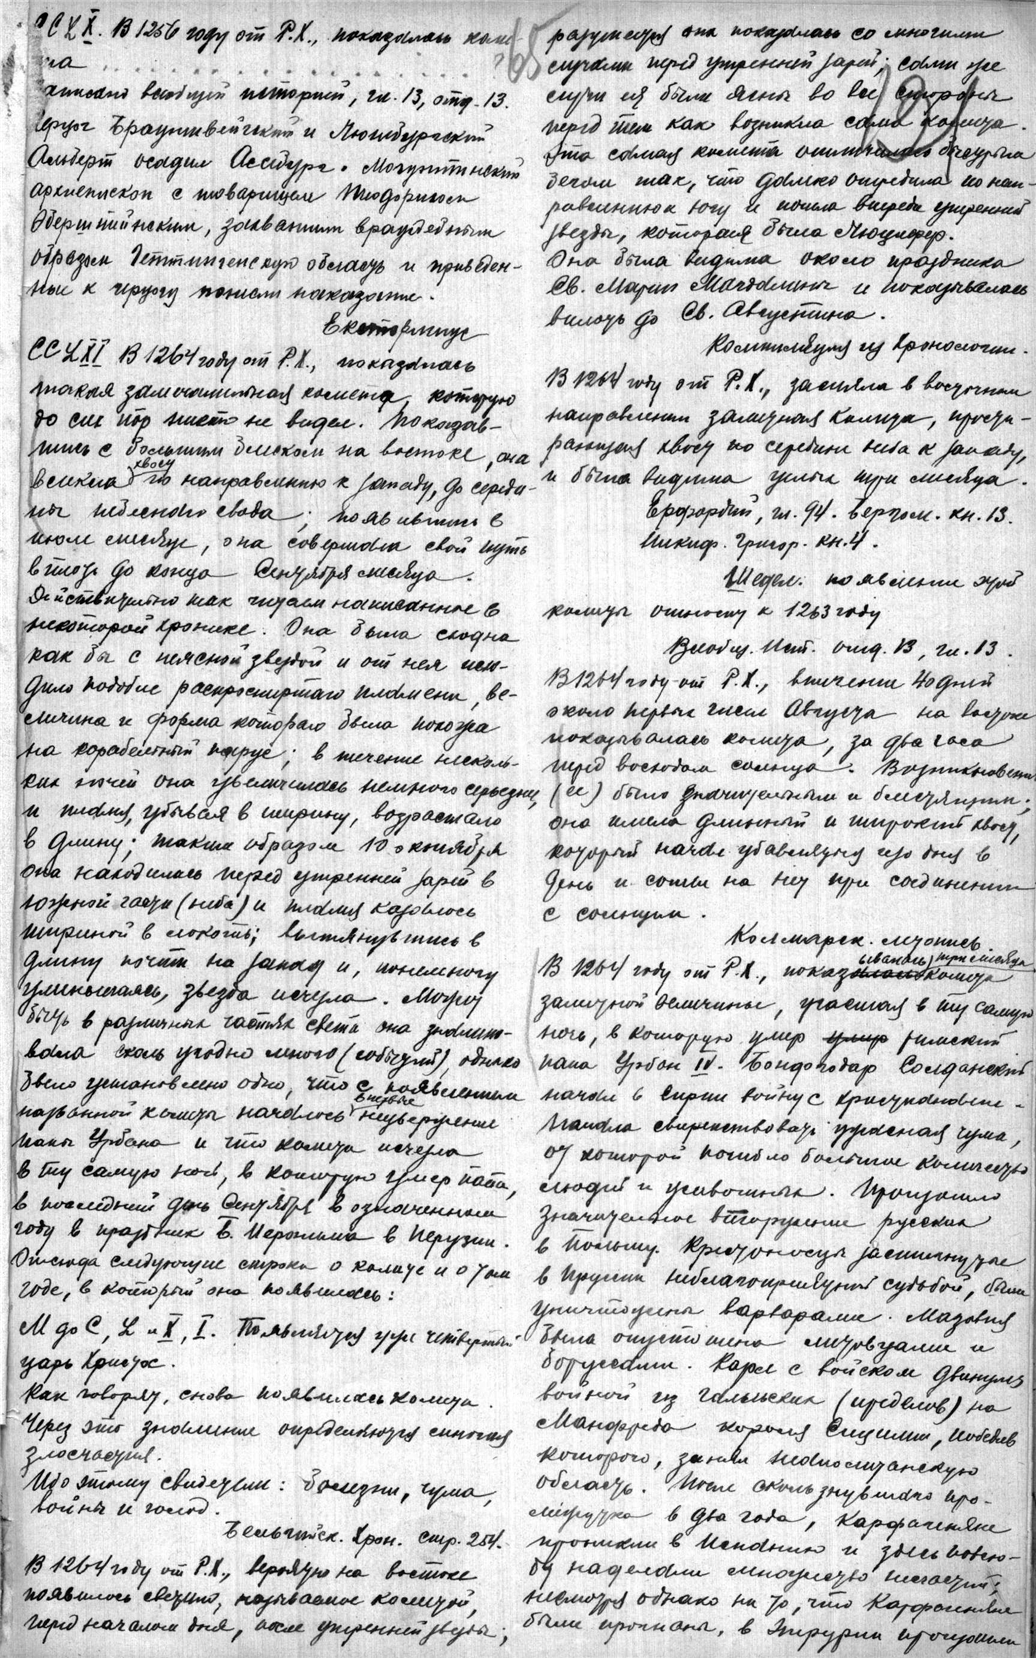 CCLX. В 1256 году от Р.Х., показалась коме-
та
записано всеобщей историей, гл. 13, отд. 13.
Герцог Брауншвейгский и Люнебургский
Альберт осадил Ассбург. Могунтинский
архиепископ с товарищем Теодорихом
Эберштейнским, захватили враждебным
образом Геттингенскую область и приведен-
ные к герцогу понесли наказание.
Екстормиус
CCLXI В 1264 году от Р.Х., показалась
такая замечательная комета, которую
до сих пор никто не видел. Показав-
шись с большим блеском на востоке, она
влекла хвост по направлению к западу, до середи-
ны небесного свода; появившись в
июле месяце, она совершала свой путь
вплоть до конца Сентября месяца.
Действительно так читаем написанное в
некоторой хронике. Она была сходна
как бы с неясной звездой и от нея исхо-
дило подобие распростертаго пламени, ве-
личина и форма котораго была похожа
на корабельный парус; в течение несколь-
ких ночей она увеличилась немного
и пламя, убывая в ширину, возрастало
в длину; таким образом 10 октября
она находилась перед утренней зарей в
южной части (неба) и пламя казалось
шириной в локоть; вытянувшись в
длину почти на запад и, понемногу
уменьшаясь, звезда исчезла. Могут
быть в различных частях света она знамено-
вала сколь угодно много (событий), однако
было установлено одно, что с появлением
названной кометы началось впервые
папы Урбана и что комета исчезла
в ту самую ночь, в которую умер папа,
в последний день Сентября в означенном
году в праздник Б. Иеронима в Перузии.
Отсюда следующие строки о комете и о том
годе, в который она появилась:
M до C, L и X, I. Появляется уже четвертый
царь Христос.
Как говорят, снова появилась комета.
Через это знамение определяются многия
злосчастия.
Ибо этому свидетели: болезни, чума,
войны и голод.
Бельгийск. Хрон. стр. 254.
В 1264 году от Р.Х., вероятно на востоке
появилось светило, называемое кометой,
перед началом дня, после утренней звезды;
разумеется она показалась со многими
лучами перед утренней зарей; сами же
лучи ея были ясны во все стороны
перед тем как возникла сама комета.
Эта самая комета отличалась быстрым
бегом так, что далеко опередила по нап-
равлению к югу и пошла впереди утренней
звезды, которая была Люцифер.
Она была видима около праздника
Св. Марии Магдалины и показывалась
вплоть до Св. Августина.
Компиляция из Хронологии.
В 1264 году от Р.Х., засияла в восточном
направлении заметная комета, прости-
рающая хвост по середине неба к западу,
и была видима целых три месяца.
Ерфордий, гл. 94. Бергом. кн. 13.
Никиф. Григор. кн. 4.
Шедел. появление этой
кометы относит к 1263 году
Всеобщ. Ист. отд. 13, гл. 13.
В 1264 году от Р.Х., в течение 40 дней
около первых чисел Августа на востоке
показывалась комета, за два часа
перед восходом солнца. Возникновение
(ее) было значительным и блестящим;
она имела длинный и широкий хвост,
который начал убавляться изо дня в
день и сошел на нет при соединении
с солнцем.
Колмарск. летопись.
В 1264 году от Р.Х., показывалась три месяца комета
заметной величины, угасшая в ту самую
ночь, в которую умер римский
папа Урбан IV. Бондогодар Солданский
начал в Сирии войну с христианами.
Начала свирепствовать ужасная чума,
от которой погибло большое количество
людей и животных. Произошло
значительное вторжение русских
в Польшу. Крестоносцы застигнутые
в Пруссии неблагоприятной судьбой, были
уничтожены варварами. Мазовия
была опустошена литовцами и
боруссами. Карл с войском двинулся
войной из гальских (пределов) на
Манфреда короля Сицилии, победив
которого, занял неаполитанскую
область. После ускользнувшаго про-
межутка в два года, Карфагеняне
проникли в Испанию и здесь повсю-
ду наделали множество несчастий;
несмотря однако на то, что Карфагеняне
были прогнаны, в Этрурии произошли